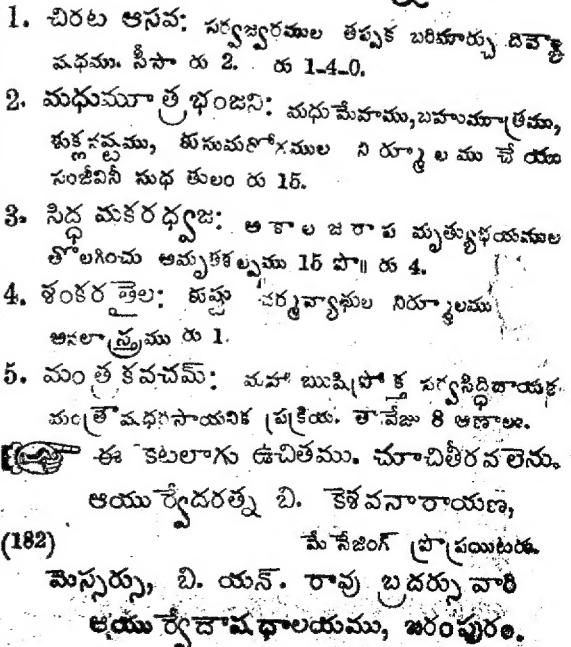 1. చిరట ఆసవ: సర్వజ్వరముల తప్పక బరిమార్చు దివ్యౌ
షధము. సీసా రు 2. రు 1-4-0.
2. మధుమూత్ర భంజని: మధుమేహము, బహుమూత్రము,
శుక్లనష్టము, కుసుమరోగముల నిర్మూలము చేయు
సంజీవినీ సుధ తులం రు 15.
3. సిద్ధ మకరధ్వజ: అకాల జరాప మృత్యుభయముల
తొలగించు అమృతకల్పము 15 పొ॥ రు 4.
4. శంకర తైల: కుష్టు చర్మవ్యాధుల నిర్మూలము
రు 1.
5. మంత్ర కవచమ్: మహా ఋషిప్రోక్త సర్వసిద్ధిదాయక
మంత్రౌషధరసాయనిక ప్రక్రియ. తావేజు 8 అణాలు.
ఈ కెటలాగు ఉచితము. చూచితీరవలెను.
ఆయుర్వేదరత్న బి. కేశవనారాయణ,
(182) మేనేజింగ్ ప్రొప్రయిటరు.
మెస్సర్సు, బి. యన్. రావు బ్రదర్సు వారి
ఆయుర్వేదౌషధాలయము, బరంపురం.